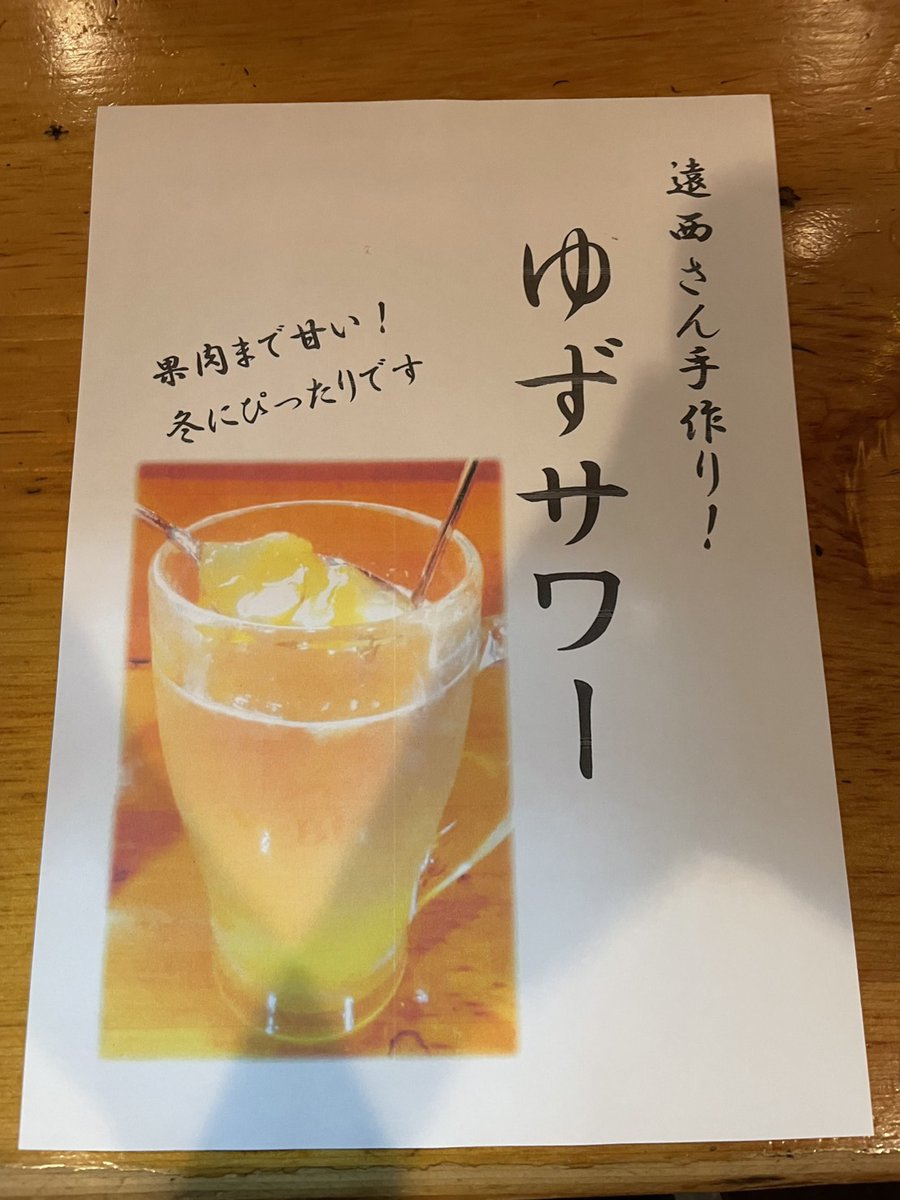 遠西さん手作り！
ゆずサワー
果肉まで甘い！
冬にぴったりです